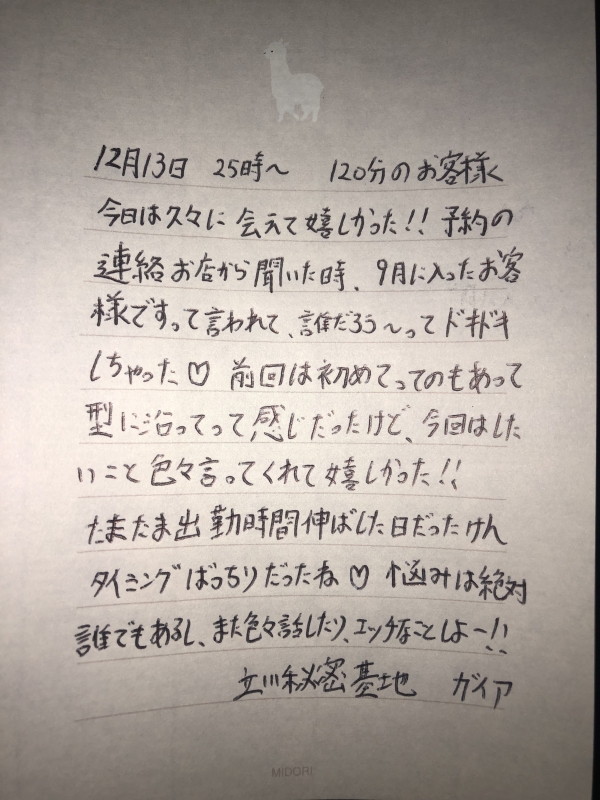 12月13日 25時〜 120分のお客様へ
今日は久々に会えて嬉しかった!! 予約の
連絡お店から聞いた時、9月に入ったお客
様ですって言われて、誰だろう〜ってドキドキ
しちゃった♡ 前回は初めてってのもあって
型に沿ってって感じだったけど、今回はした
いこと色々言ってくれて嬉しかった!!
たまたま出勤時間伸ばした日だったけん
タイミングばっちりだったね♡ 悩みは絶対
誰でもあるし、また色々話したり、エッチなことしよー!!
立川秘密基地 ガイア
MIDORI